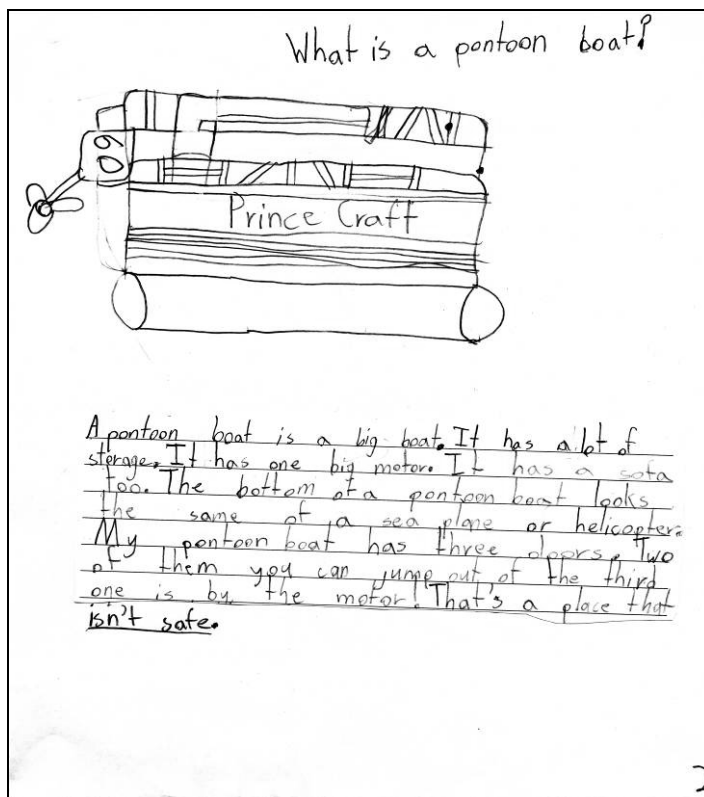 What is a pontoon boat?
60
Prince Craft
A pontoon boat is a big boat. It has a lot of
storage. It has one big motor. It has a sofa
too. The bottom of a pontoon boat looks
the same of a sea plane or helicopter.
My pontoon boat has three doors. Two
of them you can jump out of the third
one is by the motor! That's a place that
isn't safe.